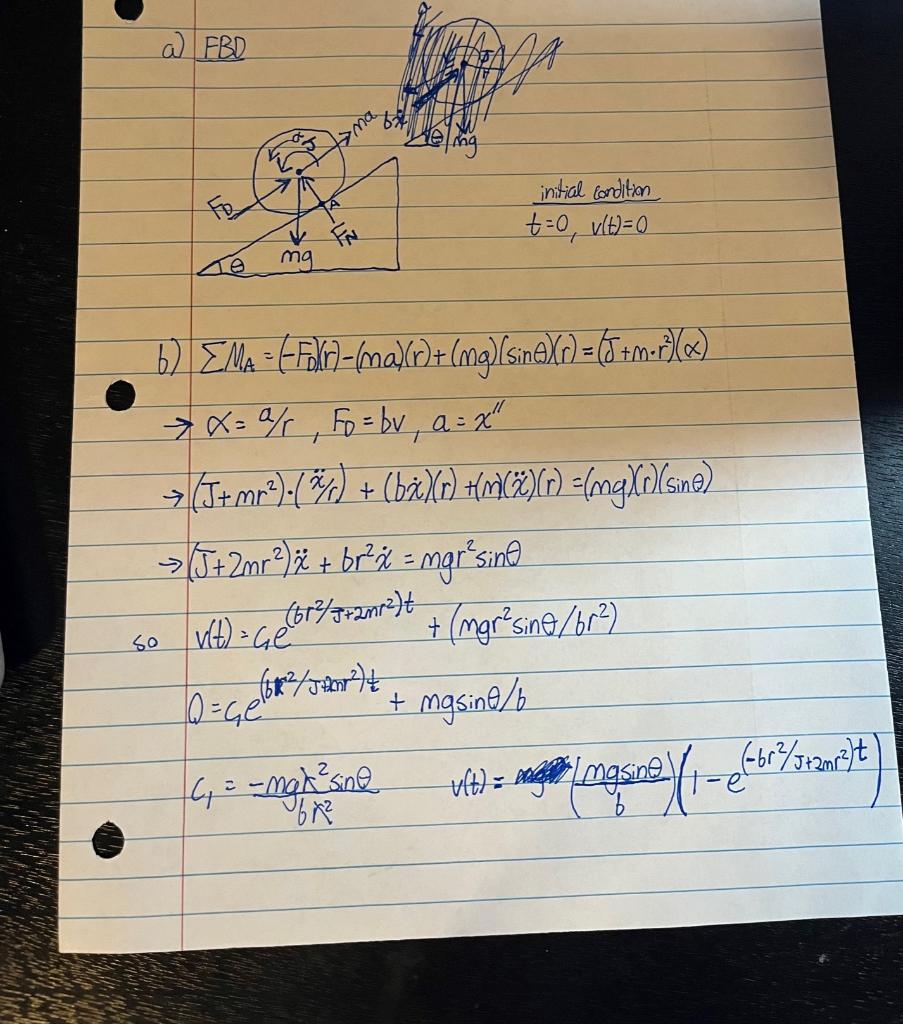 a) FBD
ma
α J
bẋ
θ mg
F_D
A
F_N
θ mg
initial condition
t=0, v(t)=0
b) ΣM_A = (-F_D)(r) - (ma)(r) + (mg)(sinθ)(r) = (J+m·r²)(α)
→ α = a/r , F_D = bv , a = x″
→ (J+mr²)·(ẍ/r) + (bẋ)(r) + (m)(ẍ)(r) = (mg)(r)(sinθ)
→ (J+2mr²)ẍ + br²ẋ = mgr²sinθ
so v(t) = c₁e^(br²/J+2mr²)t + (mgr²sinθ/br²)
0 = c₁e^(br²/J+2mr²)t + mgsinθ/b
c₁ = -mgr²sinθ/br² v(t) = (mgsinθ/b)(1 - e^(-br²/J+2mr²)t)